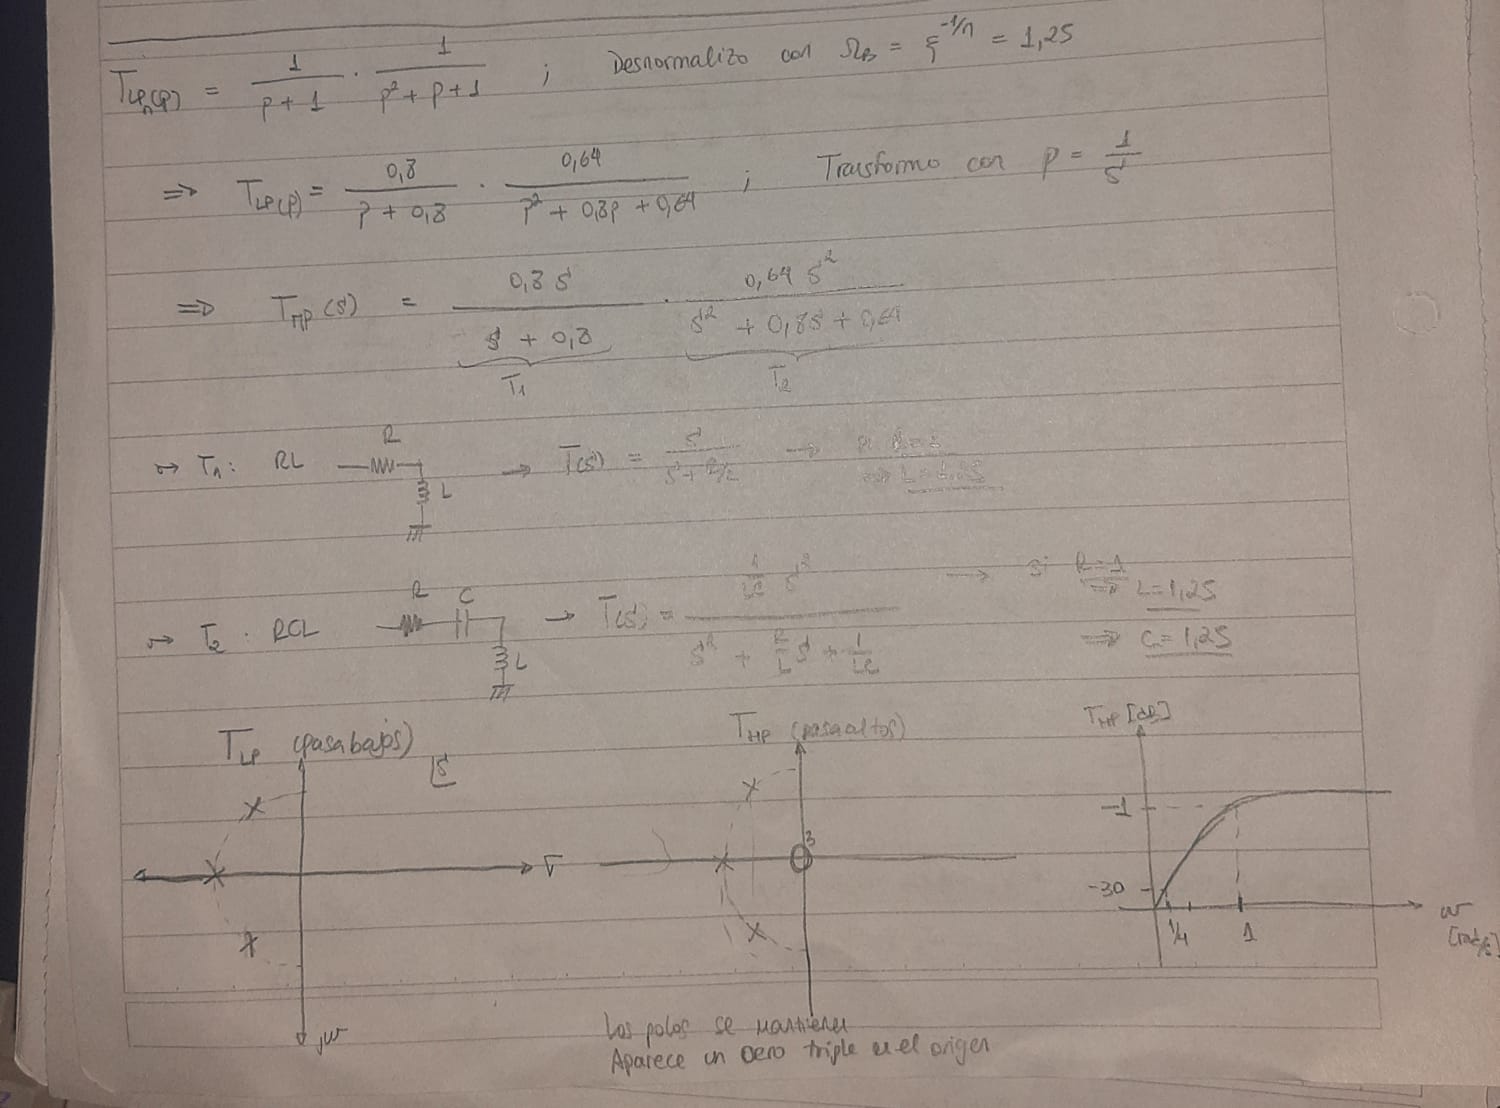 T_LPn(p) = 1/(p + 1) · 1/(p² + p + 1) ; Desnormalizo con Ω_B = ξ^(-1/n) = 1,25
⇒ T_LP(p) = 0,8/(p + 0,8) · 0,64/(p² + 0,8p + 0,64) ; Transformo con p = 1/s
⇒ T_HP(s) = 0,8 s/(s + 0,8) · 0,64 s²/(s² + 0,8s + 0,64)
T₁ T₂
↝ T₁ : RL R L → T(s) = s/(s + R/L) →
⇒ L = 1,25
↝ T₂ : RCL R C L → T(s) = (1/LC s²)/(s² + R/L s + 1/LC) → si R = 1
⇒ L = 1,25
⇒ C = 1,25
T_LP (pasabajos) s
T_HP (pasa altos) 3
T_HP [dB]
-1
-30
1/4 1 ω [rad/s]
σ
jω
Los polos se mantienen
Aparece un cero triple en el origen